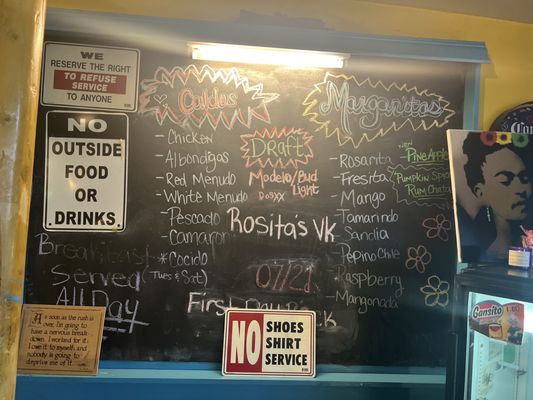 WE
RESERVE THE RIGHT
TO REFUSE
SERVICE
TO ANYONE
NO
OUTSIDE
FOOD
OR
DRINKS
Breakfast
Served
All DAY
As soon as the rush is
over, I'm going to
have a nervous break-
down. I worked for it,
I owe it to myself, and
nobody is going to
deprive me of it.
Caldos
- Chicken
- Albondigas
- Red Menudo
- White Menudo
- Pescado
- Camaron
* Cocido
(Tues & Sat)
DRAFT
Modelo/Bud
Light
Dos XX
Rosita's VK
07/21
First Day Back
Margaritas
- Rosarita
- Fresita
- Mango
- Tamarindo
- Sandia
- Pepino Chile
- Raspberry
- Mangonada
NEW
PineApple
PUMPKIN SPICE
RUM CHATA
NO
SHOES
SHIRT
SERVICE
Gansito